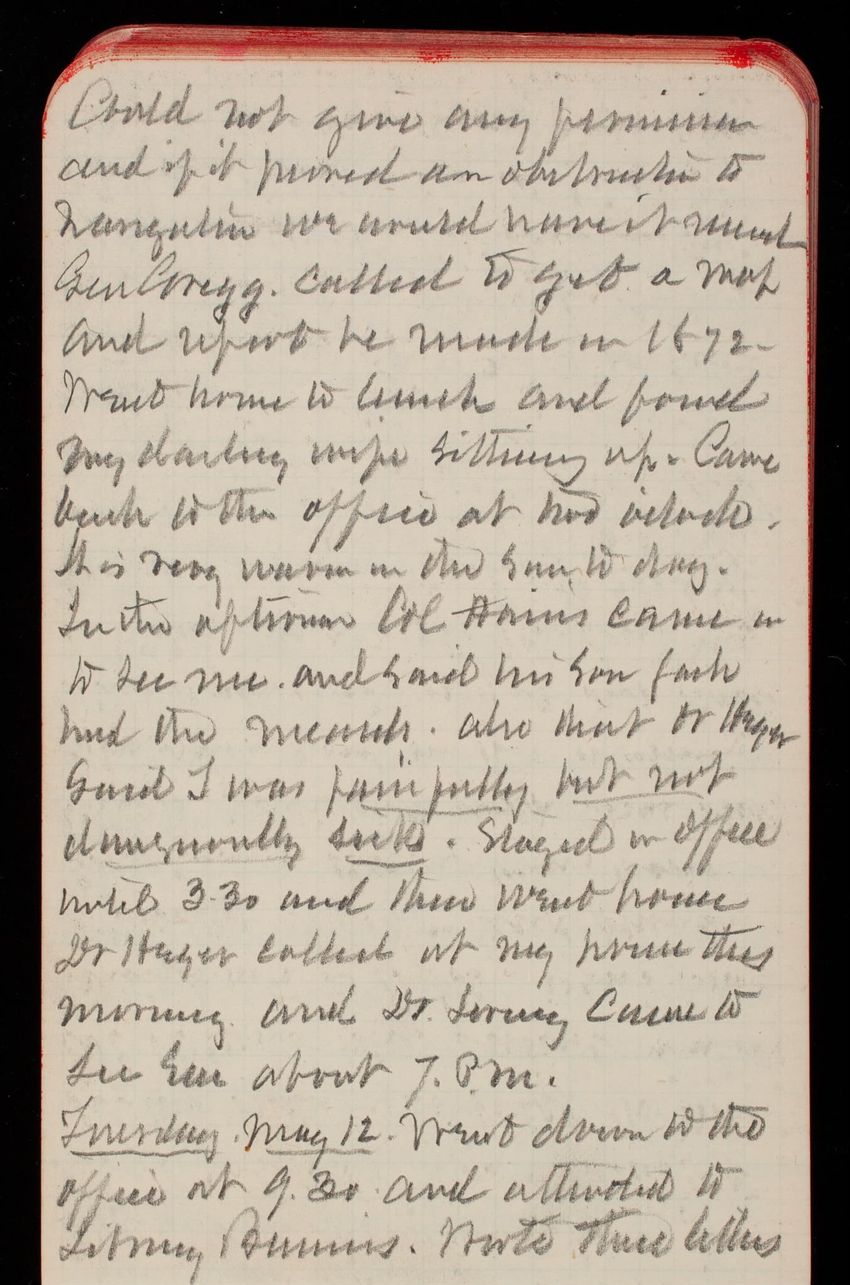 Could not give any permission
and if it proved an obstruction to
navigation we would have it removed
Gen Gregg. called to get a map
and report he made in 1872-
Went home to lunch and found
my darling wife sitting up. Came
back to the office at two oclock.
It is very warm in the sun to day.
In the afternoon Col Hains came in
to see me. and said his son Jack
had the measels. also that Dr Heger
said I was painfully but not
dangerously sick. Stayed in office
until 3.30 and then went home
Dr Heger called at my house this
morning and Dr. Loring Came to
see about 7. P.M.
Tuesday. May 12. Went down to the
office at 9.30 and attended to
Library Business. Wrote three letters